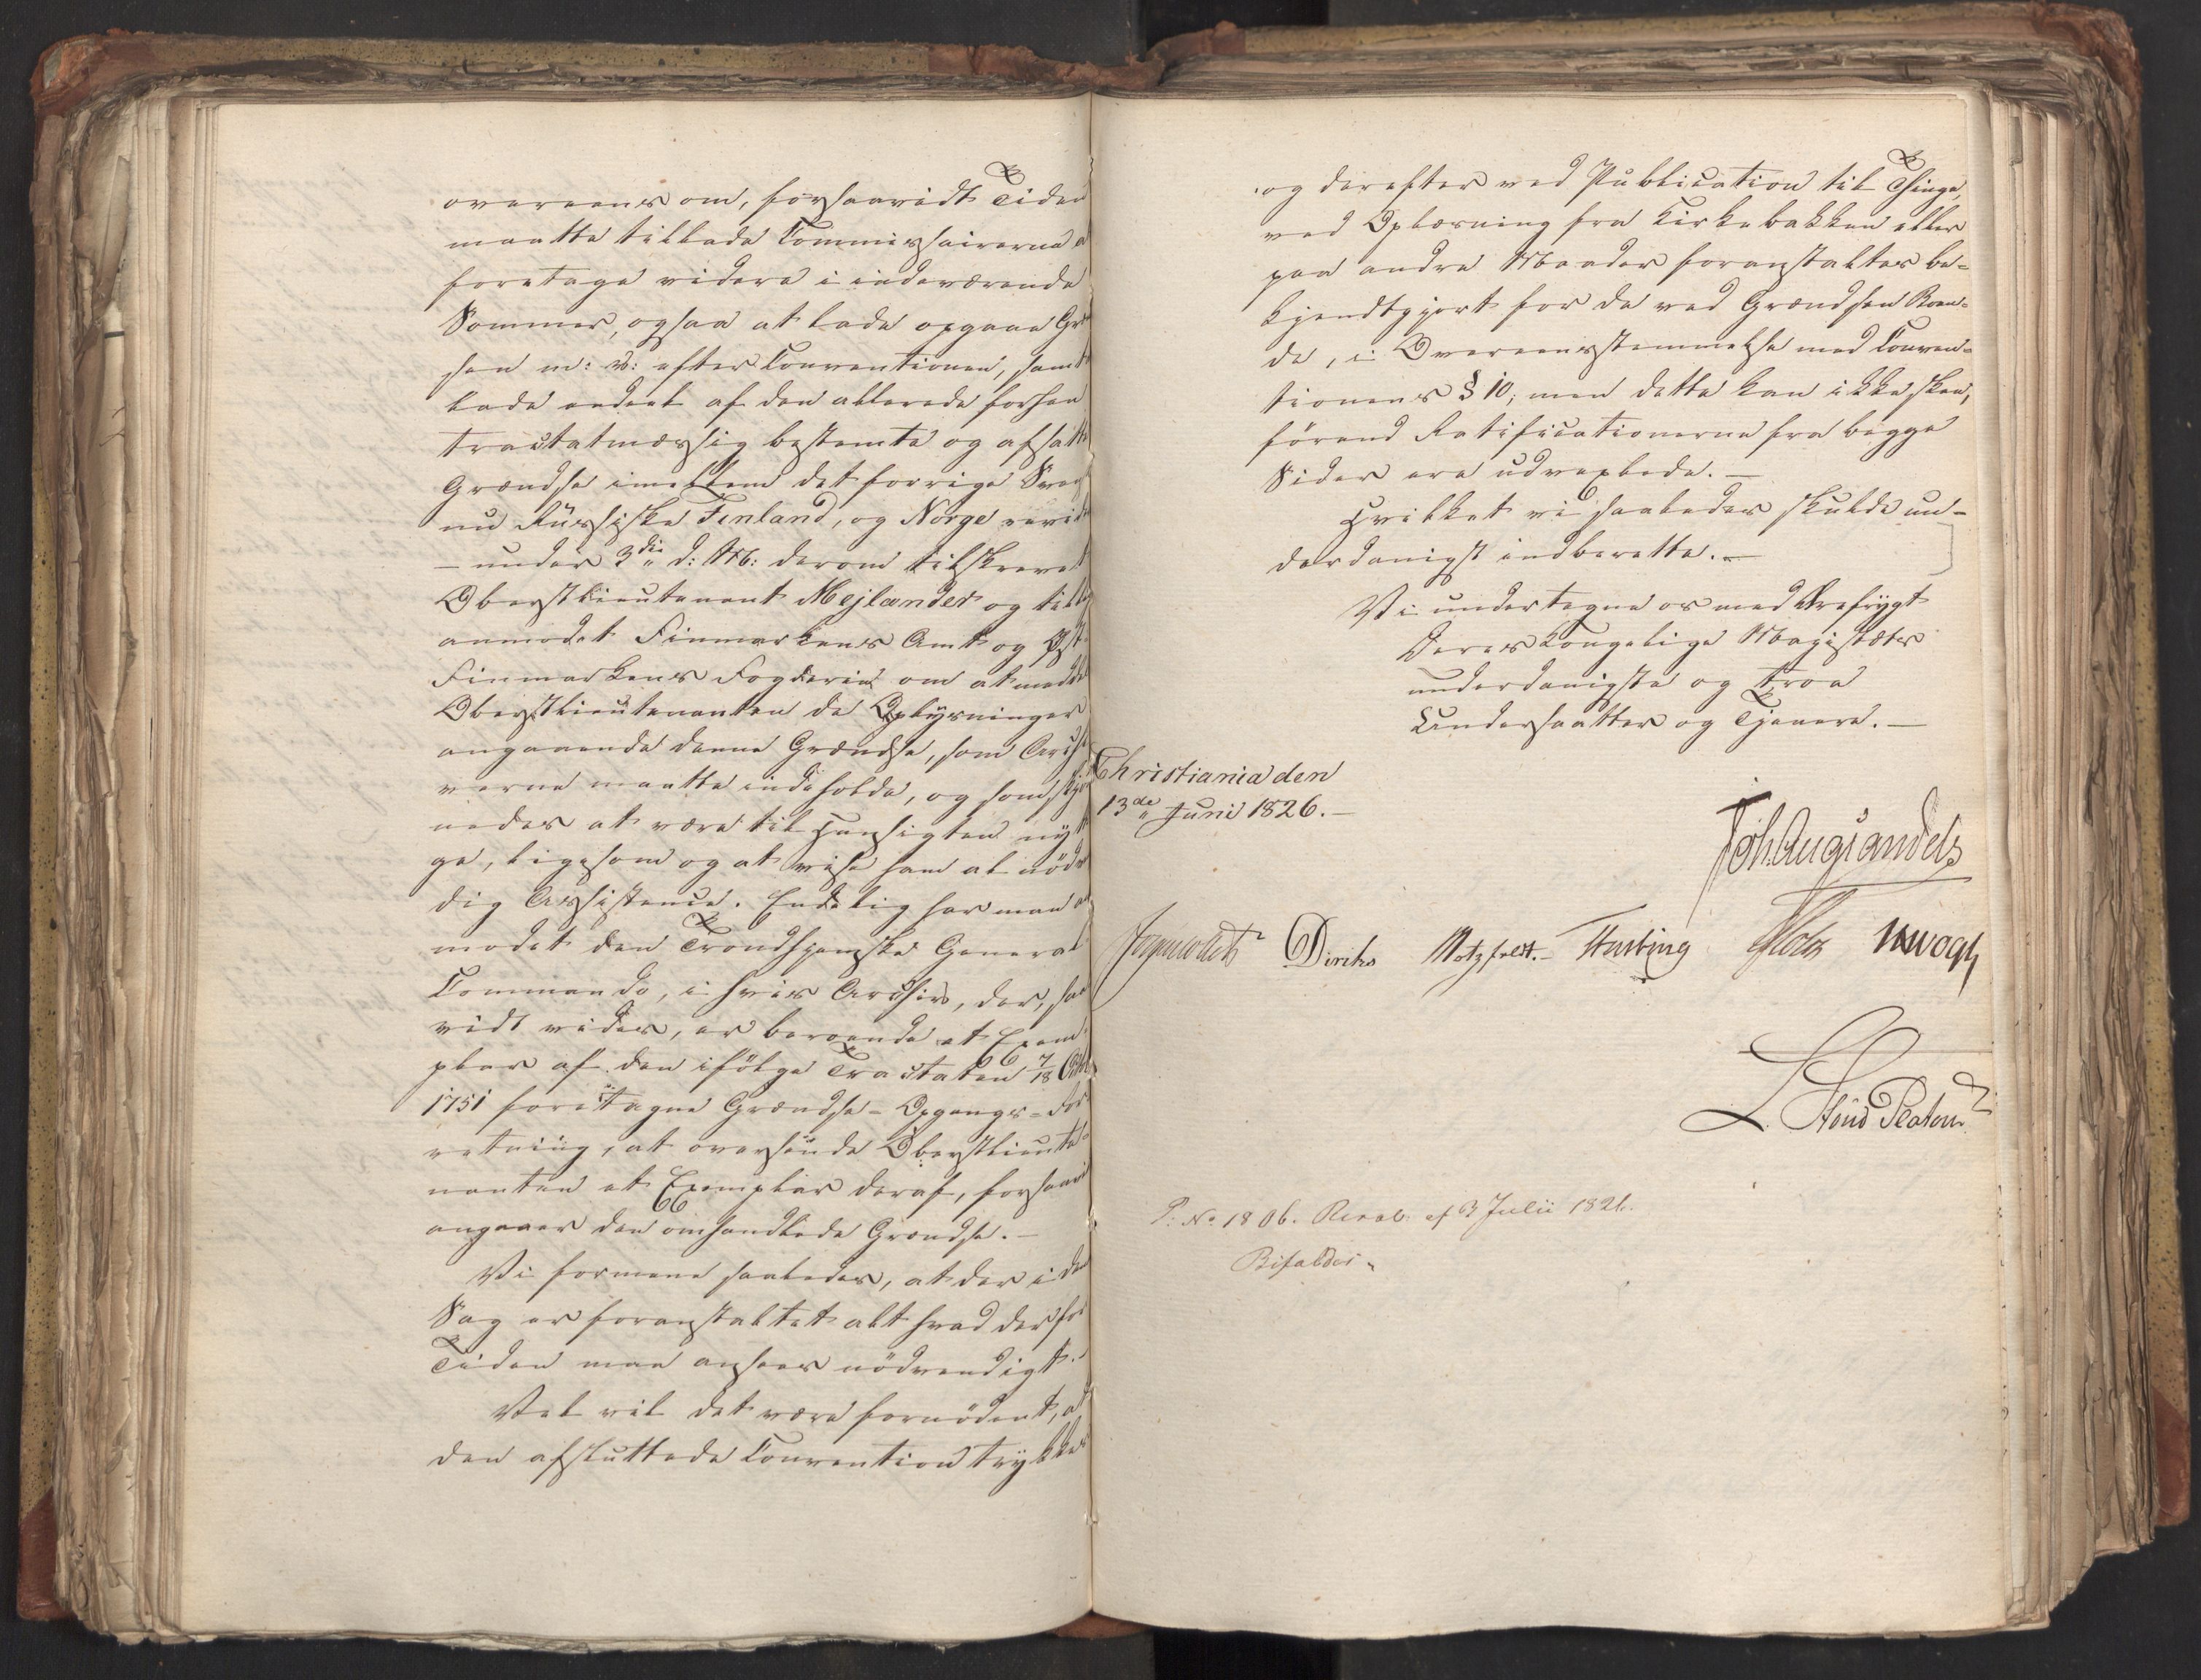 overeens om, forsaavidt Tiden
maatte tillade Commissairerne a
foretage videre i indeværende
Sommer, ogsaa at lade opgaae Græ
sen m: v: efter Conventionen, samt
lade endeel af den allerede forhen
tractatmæssig bestemte og afsatte
Grændse imellem det forrige Sven
nu Russiske Finland, og Norge revid
– under 3die d: M: derom tilskrevet
Oberstlieutenant Mejlander og till
anmodet Finmarkens Amt og Øst
Finmarkens Fogderie om at medde
Oberstlieutenanten de Oplysninger
angaaende denne Grændse, som Archi
verne maatte indeholde, og som skjøn
nedes at være til Hensigten nytt
ge, ligesom og at vise ham al nød
dig Assistence. Endelig har man a
modet den Trondhjemske General
Commando, i hvis Archiv, der, saa
vidt vides, er beroende et Exem
plar af den ifölge Tractaten 7/18 Octb
1751 foretagne Grændse-Opgangs-For
retning, at oversende Oberstlieute
nanten et Exemplar deraf, forsaavi
angaaer den omhandlede Grændse. –
Vi formene saaledes, at der i den
Sag er foranstaltet alt hvad der for
Tiden maa ansees nödvendigt.
Vel vil det være fornödent, at
den afsluttede Convention trykkes
og derefter ved Publication til Thinge,
ved Oplæsning fra Kirkebakken eller
paa andre Maader foranstaltes be=
kjendtgjort for de ved Grændsen Boen=
de, i Overeensstemmelse med Conven=
tionens § 10; men dette kan ikke skee,
förend Ratificationerne fra begge
Sider ere udvexlede. –
Hvilket vi saaledes skulde un-
derdanigst indberette. –
Vi undertegne os med Ærefrygt
Deres Kongelige Majestæts
underdanigste og troe
Undersaatter og Tjenere. –
Christiania den
13de Juni 1826. –
Joh. Aug. Sandels
Diriks Motzfeldt. – Holst Vogt
L. Stoud Platou
P: No 1806. Resol: af 3 Julii 1826.
Bifaldes